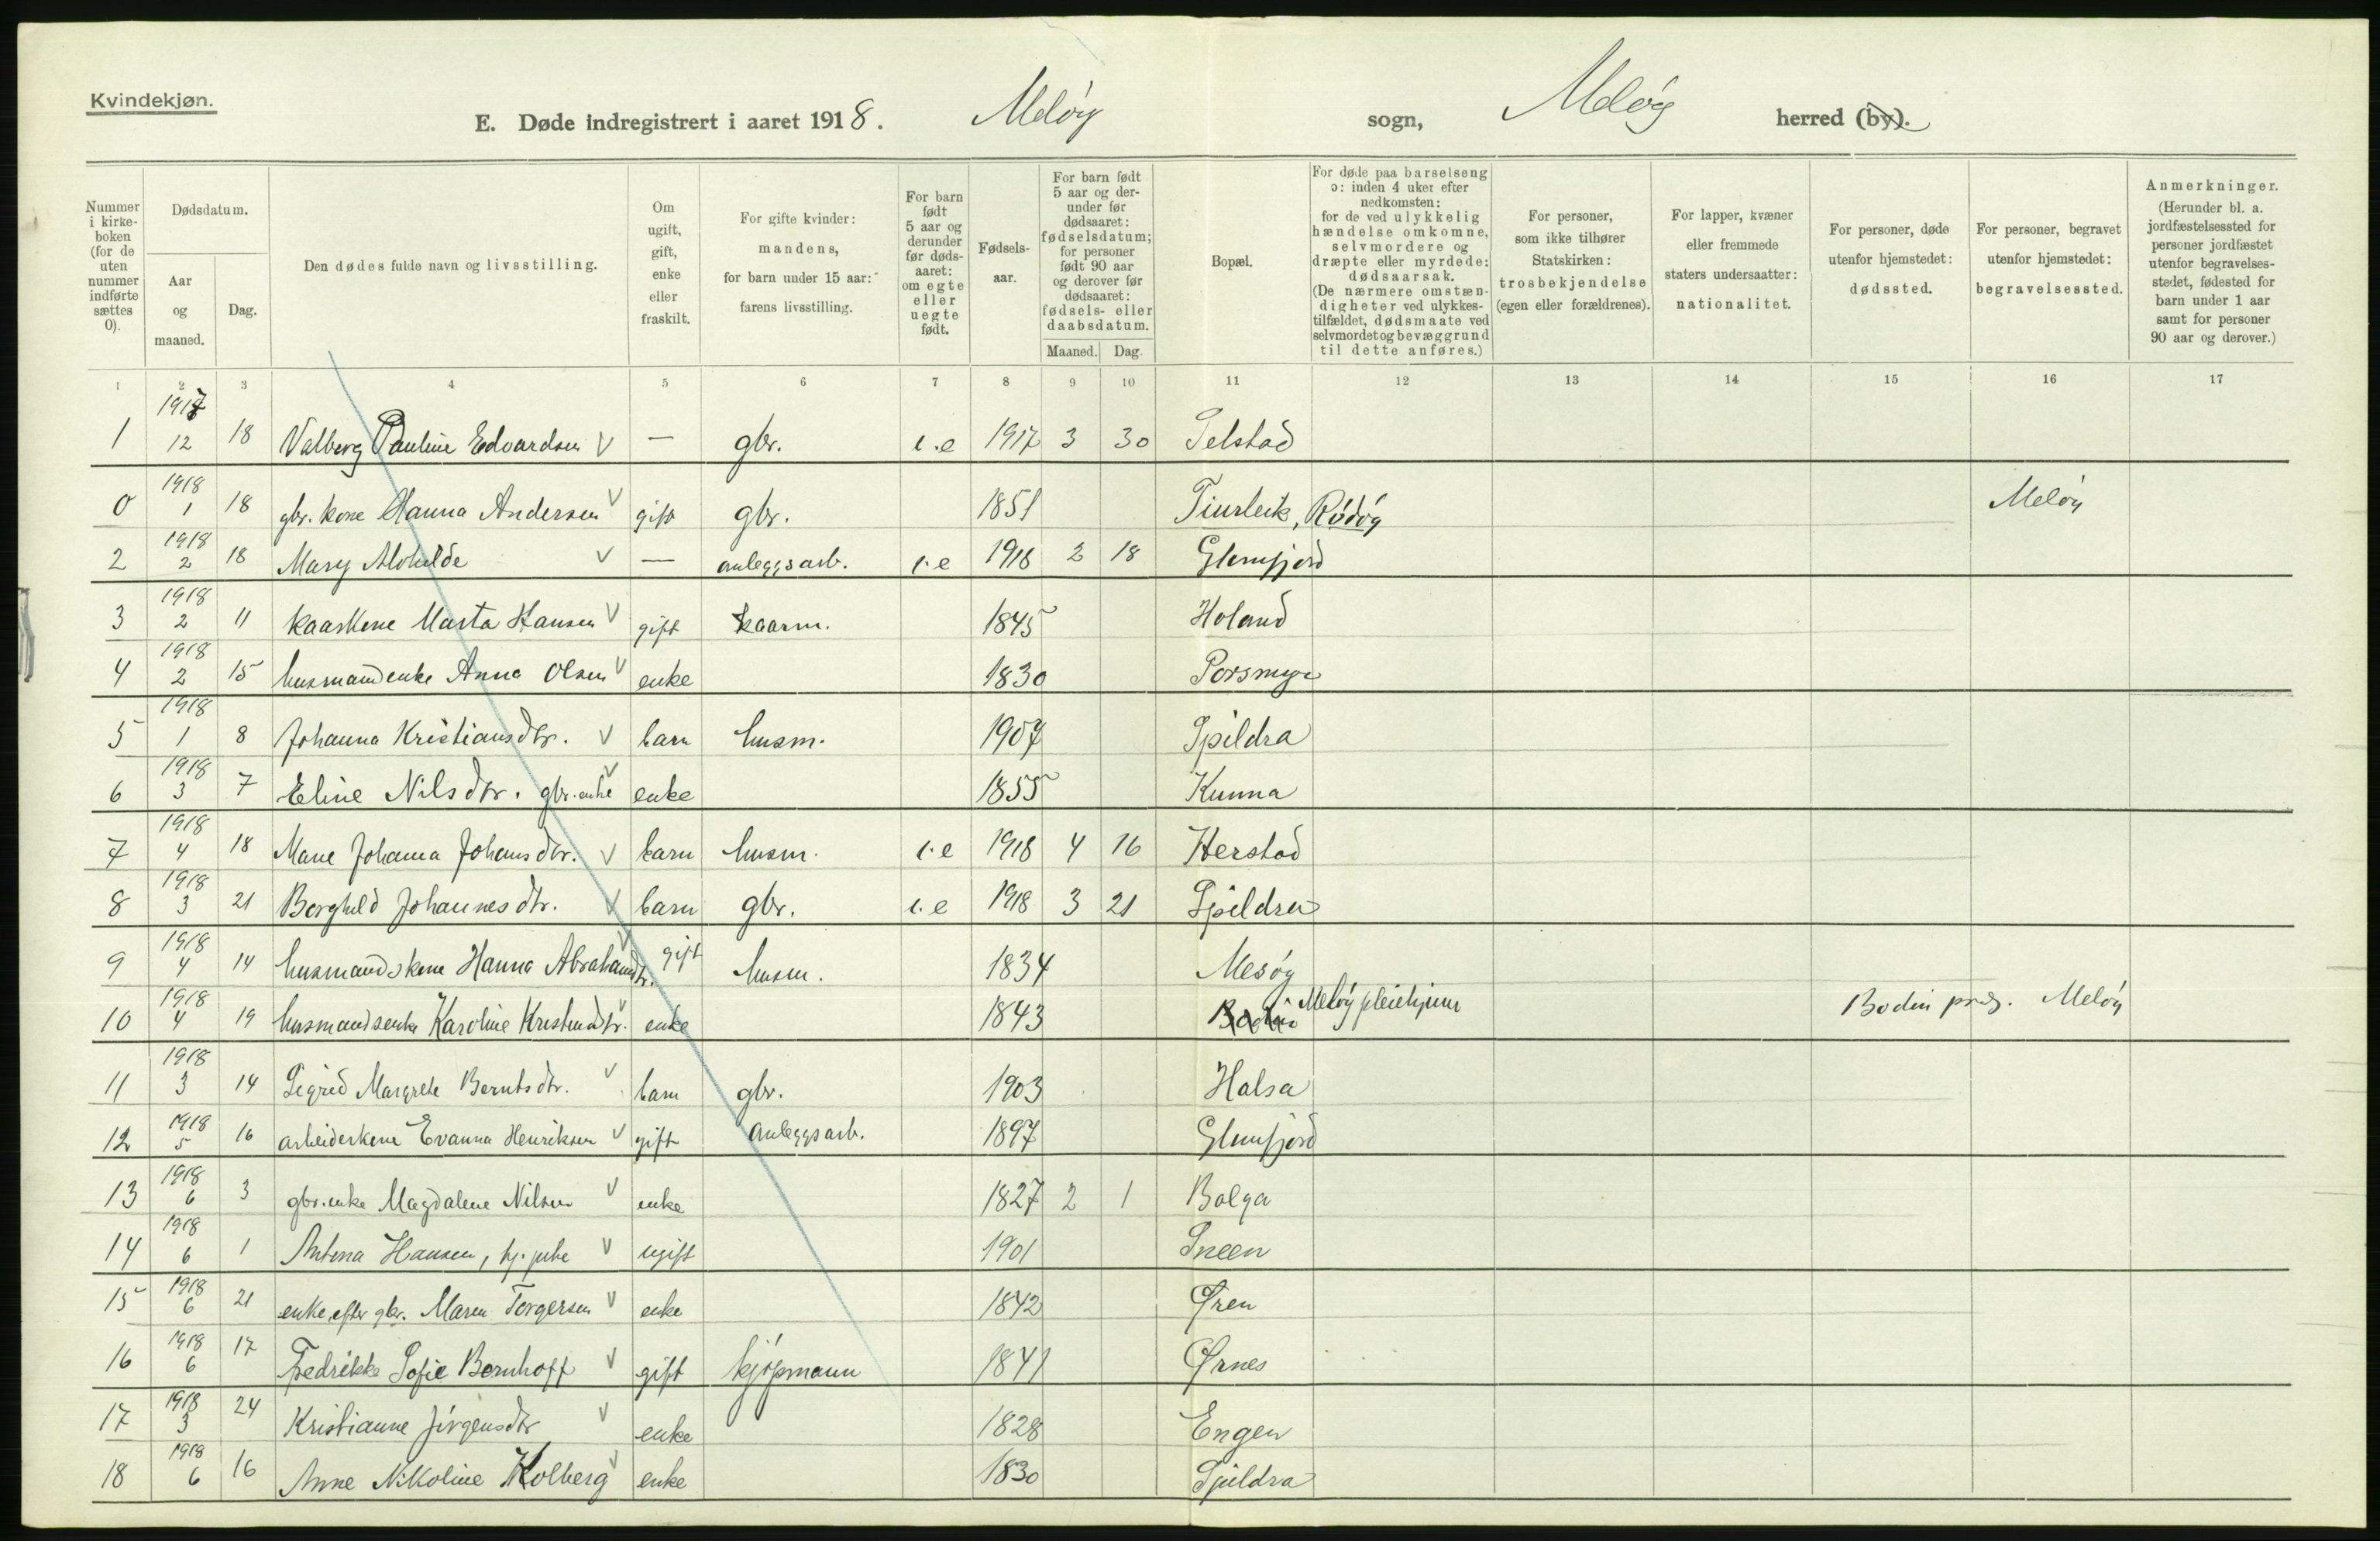 Kvindekjøn.
E. Døde indregistrert i aaret 1918. Meløy sogn, Meløy herred (by).
Nummer i kirkeboken (for de uten nummer indførte sættes 0).
Dødsdatum.
Aar og maaned.
Dag.
Den dødes fulde navn og livsstilling.
Om ugift, gift, enke eller fraskilt.
For gifte kvinder: mandens, for barn under 15 aar: farens livsstilling.
For barn født 5 aar og derunder før dødsaaret: om egte eller uegte født.
Fødselsaar.
For barn født 5 aar og derunder før dødsaaret: fødselsdatum; for personer født 90 aar og derover før dødsaaret: fødsels- eller daabsdatum.
Maaned. Dag.
Bopæl.
For døde paa barselseng ɔ: inden 4 uker efter nedkomsten: for de ved ulykkelig hændelse omkomne, selvmordere og dræpte eller myrdede: dødsaarsak. (De nærmere omstændigheter ved ulykkestilfældet, dødsmaate ved selvmordet og bevæggrund til dette anføres.)
For personer, som ikke tilhører Statskirken: trosbekjendelse (egen eller forældrenes).
For lapper, kvæner eller fremmede staters undersaatter: nationalitet.
For personer, døde utenfor hjemstedet: dødssted.
For personer, begravet utenfor hjemstedet: begravelsessted.
Anmerkninger. (Herunder bl. a. jordfæstelsessted for personer jordfæstet utenfor begravelsesstedet, fødested for barn under 1 aar samt for personer 90 aar og derover.)
1 2 3 4 5 6 7 8 9 10 11 12 13 14 15 16 17
1 1917 12 18 Valberg Pauline Edvardsen V — gbr. e 1917 3 30 Selstad
0 1918 1 18 gbr. kone Hanna Andersen V gift gbr. 1851 Rødøy Meløy
2 1918 2 18 Mary V — anleggsarb. e 1918 2 18 Glomfjord
3 1918 2 11 kaarkone Marta Hansen V gift kaarm. 1845 Holand
4 1918 2 15 husmandenke Anna Olsen V enke 1830 Porsmyr
5 1918 1 8 Johanna Kristiansdtr. V barn husm. 1907 Spildra
6 1918 3 7 Eline Nilsdtr. gbr. enke V enke 1855 Kunna
7 1918 4 18 Marie Johanna Johansdtr. V barn husm. e 1918 4 16 Herstad
8 1918 3 21 Borghild Johannesdtr. V barn gbr. e 1918 3 21 Spildra
9 1918 4 14 husmandskone Hanna Abrahamdtr. V gift husm. 1834 Mesøy
10 1918 4 19 husmandsenke Karoline Kristiansdtr. V enke 1843 Bodin Meløy pleiehjem Bodin Meløy
11 1918 3 14 Sigrid Margrete Berntsdtr. V barn gbr. 1903 Halsa
12 1918 5 16 arbeiderkone Evanna Henriksen V gift Anleggsarb. 1897 Glomfjord
13 1918 6 3 gbr. enke Magdalene Nilsen V enke 1827 2 1 Bolga
14 1918 6 1 Antona Hansen, V ugift 1901 Sneen
15 1918 6 21 enke efter gbr. Maren Torgersen V enke 1842 Øren
16 1918 6 17 Fredrikke Sofie Bernhoff V gift kjøpmann 1841 Ørnes
17 1918 3 24 Kristianne Jørgensdtr V enke 1828 Engen
18 1918 6 16 Anne Nikoline Kolberg V enke 1830 Spildra